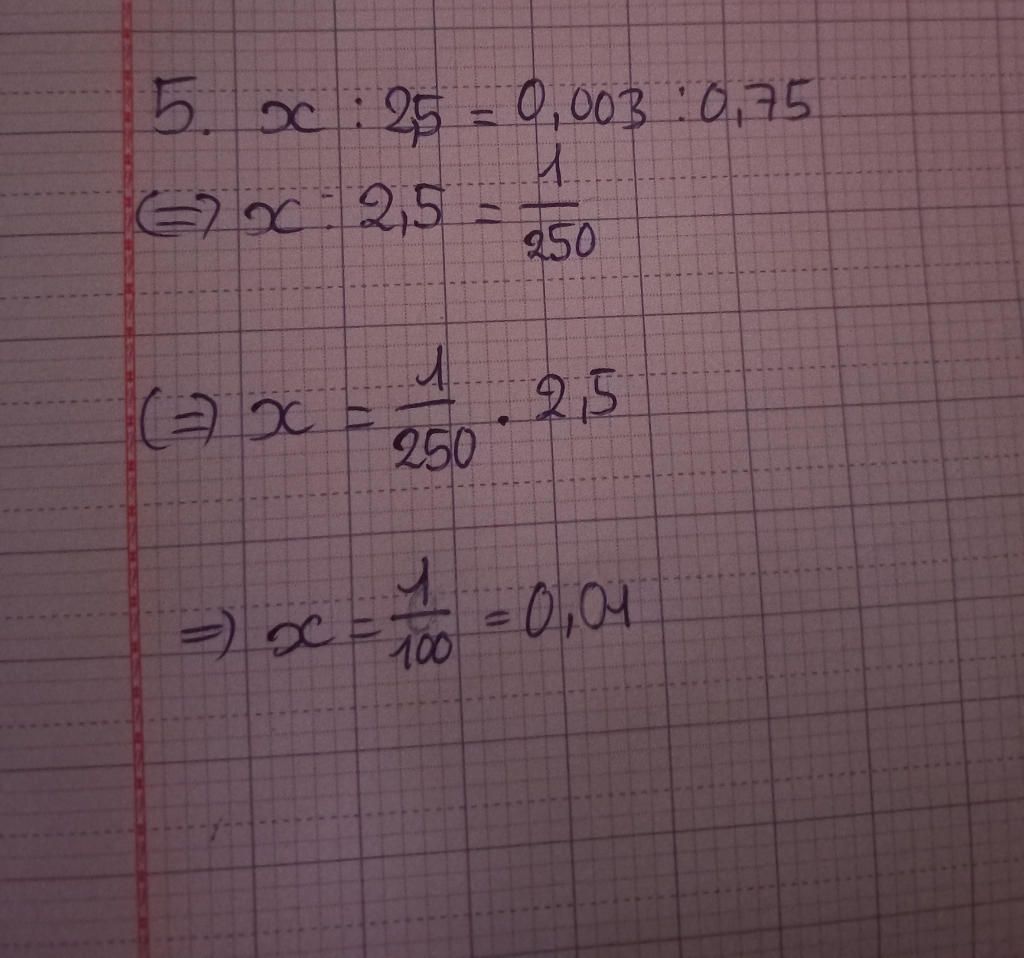 5. x : 2,5 = 0,003 : 0,75
(=) x : 2,5 = 1/250
(=) x = 1/250 . 2,5
=) x = 1/100 = 0,01